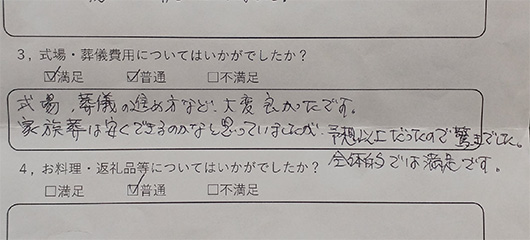 3，式場・葬儀費用についてはいかがでしたか？
☑満足 ☑普通 □不満足
式場、葬儀の進め方など、大変良かったです。
家族葬は安くできるのかなと思っていましたが、予想以上だったので驚きでした。
全体的では満足です。
4，お料理・返礼品等についてはいかがでしたか？
□満足 ☑普通 □不満足